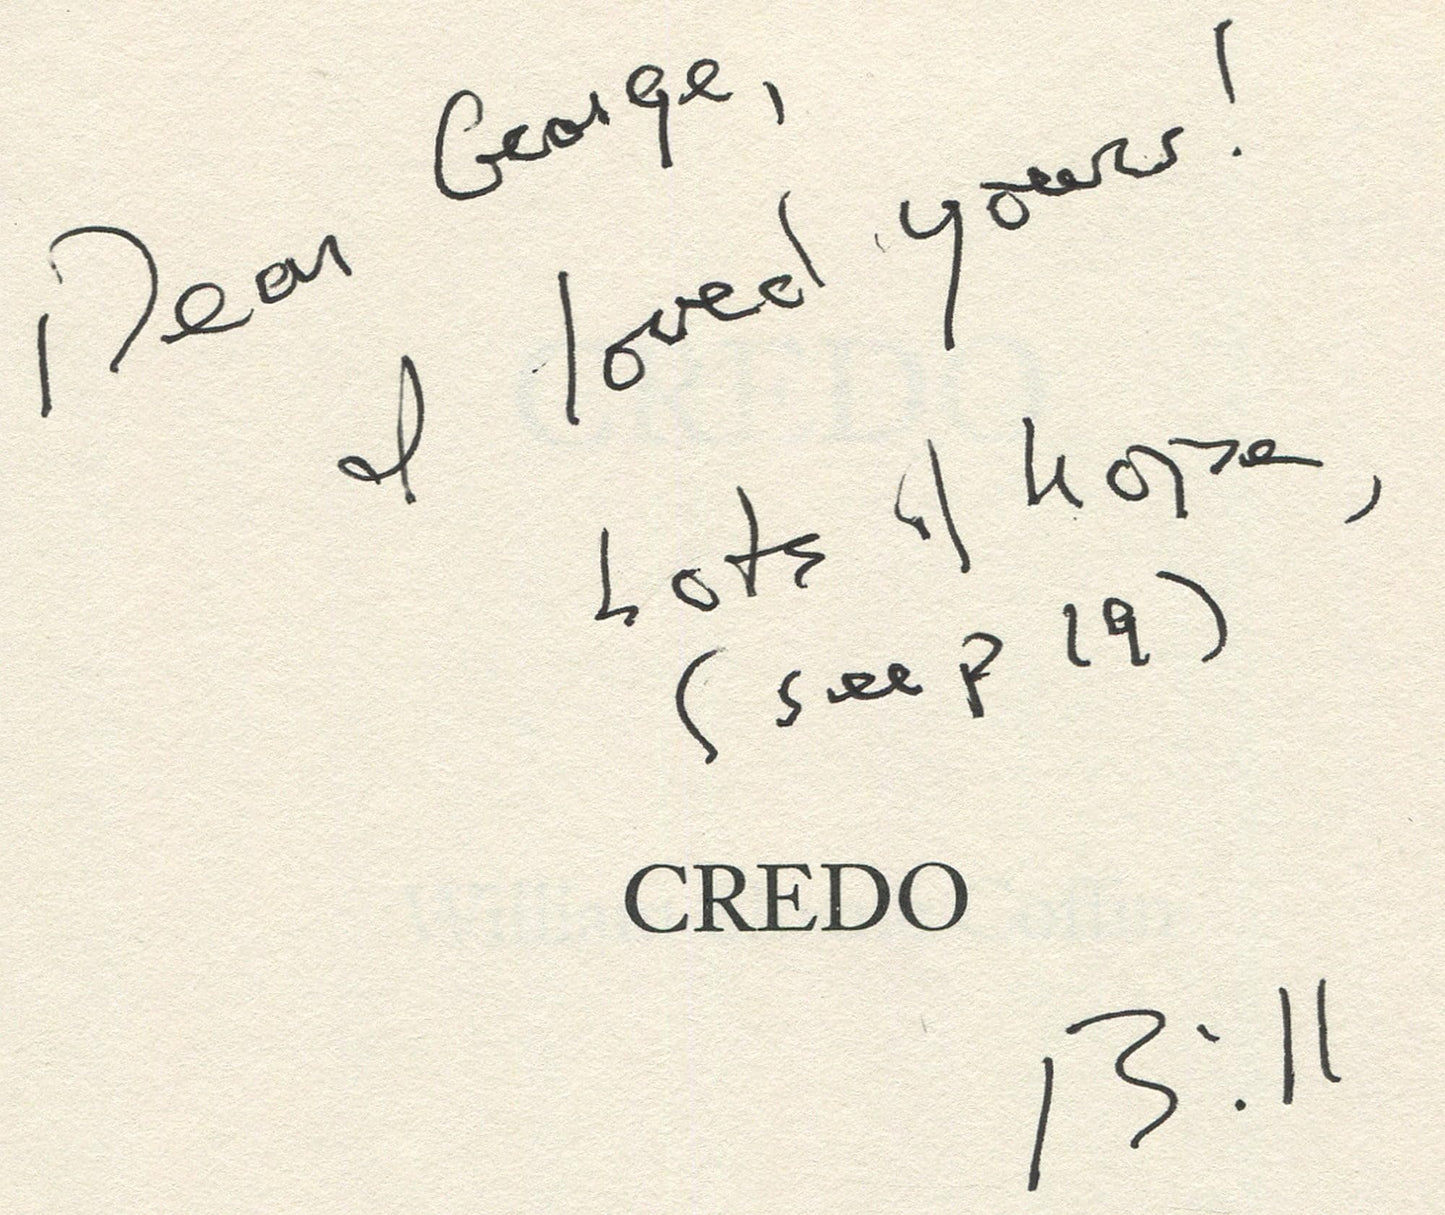 Dear George,
I loved yours!
Lots of hope,
(see p 19)
CREDO
Bill